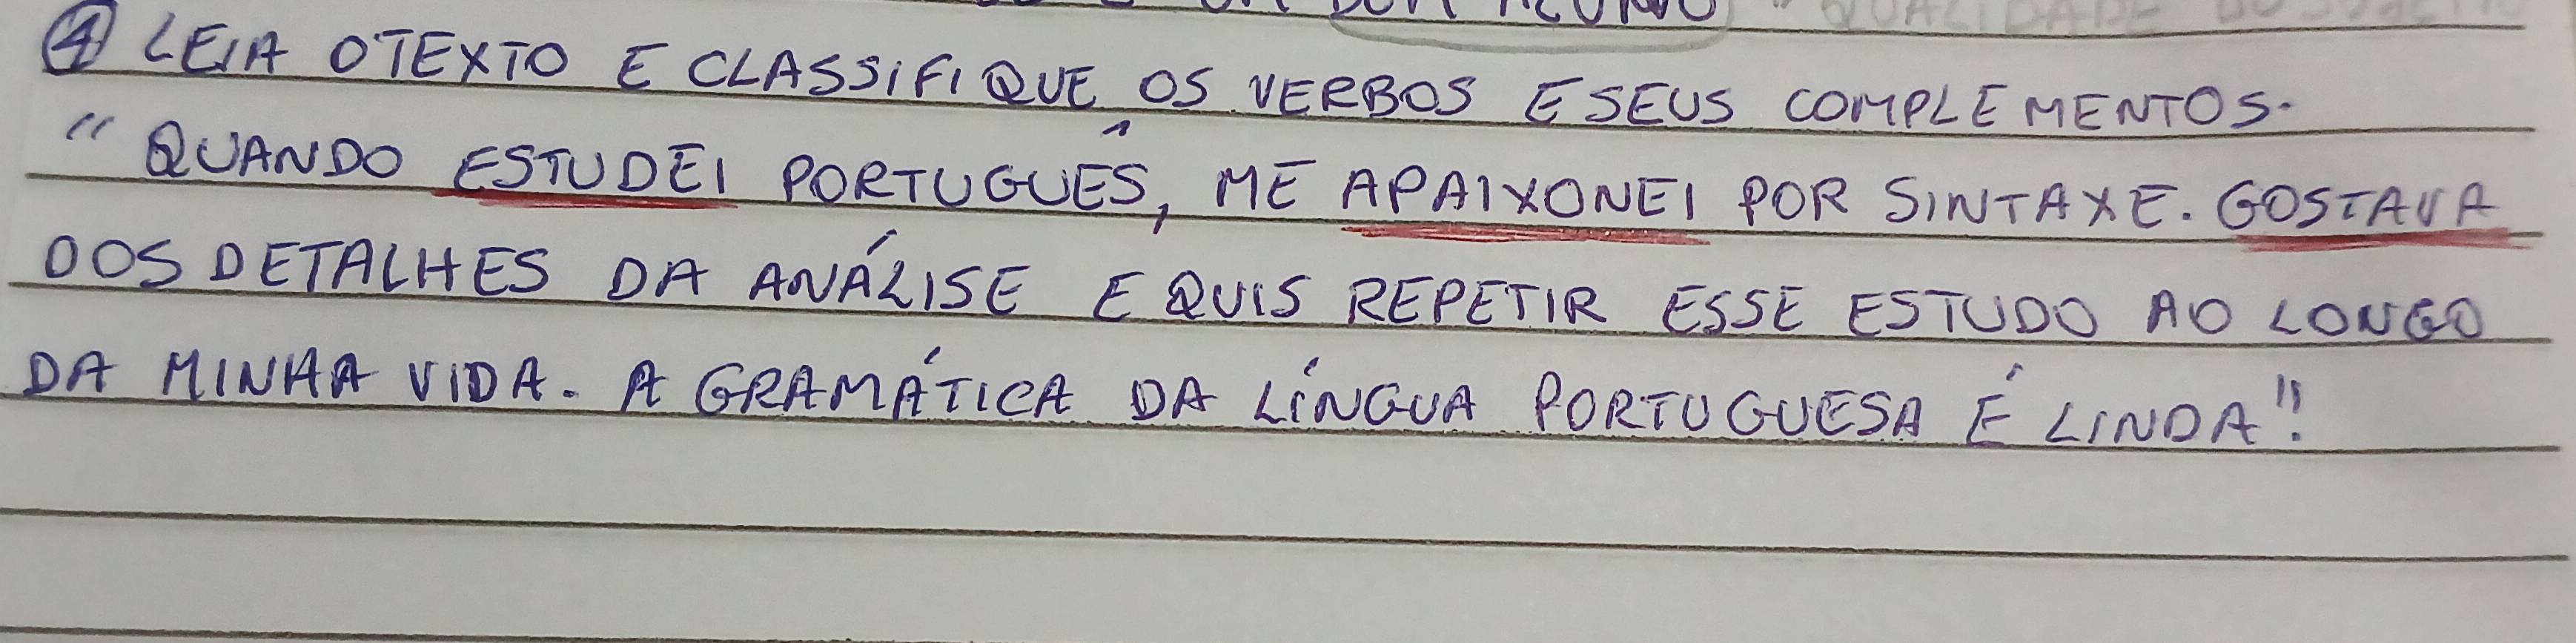 ④ LEIA O TEXTO E CLASSIFIQUE OS VERBOS E SEUS COMPLEMENTOS.
"QUANDO ESTUDEI PORTUGUÊS, ME APAIXONEI POR SINTAXE. GOSTAVA
DOS DETALHES DA ANÁLISE E QUIS REPETIR ESSE ESTUDO AO LONGO
DA MINHA VIDA. A GRAMÁTICA DA LÍNGUA PORTUGUESA É LINDA"!